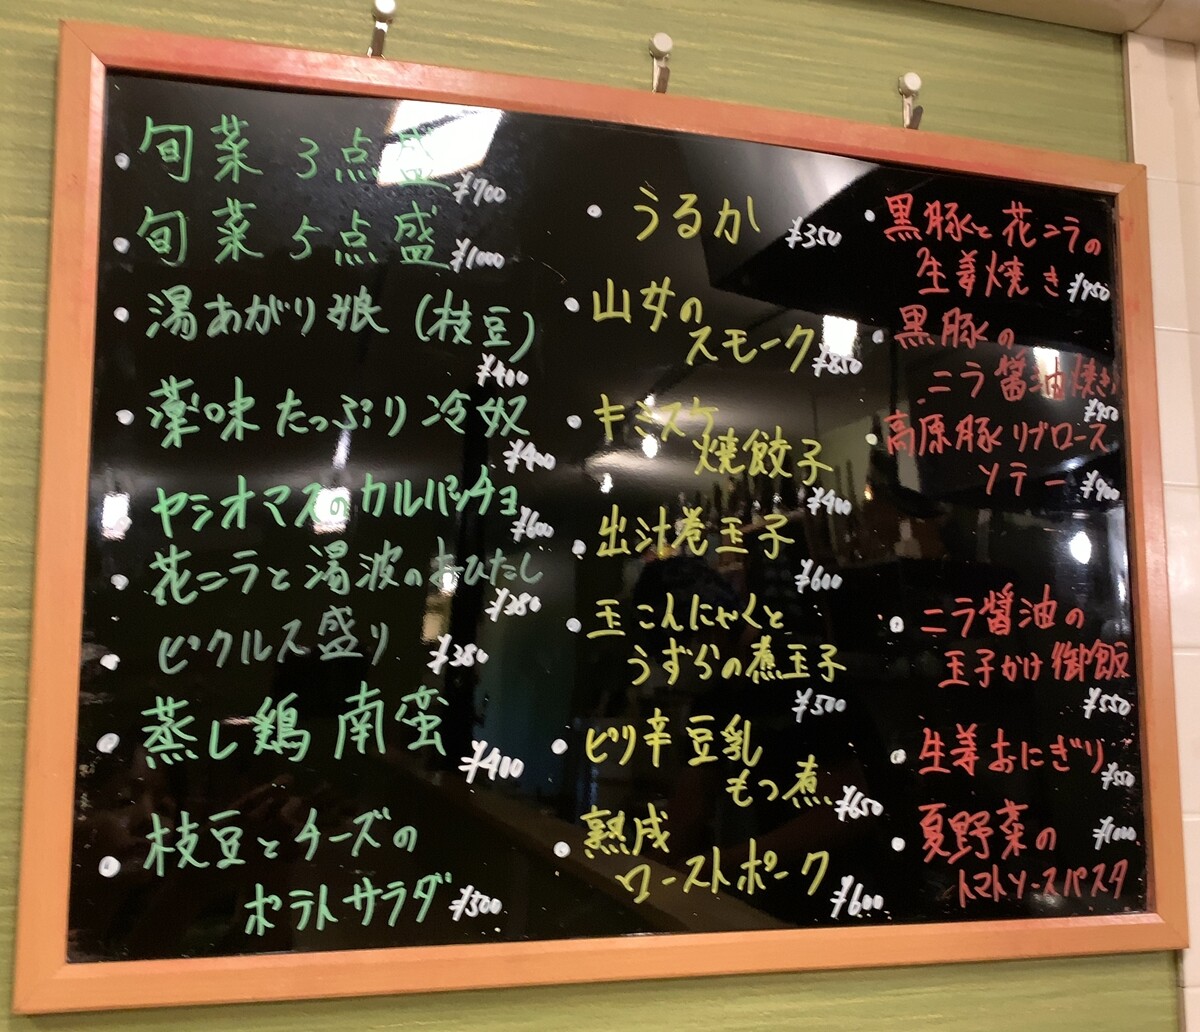 旬菜 3点盛 ¥700
旬菜 5点盛 ¥1000
湯あがり娘 (枝豆)
¥400
薬味たっぷり冷奴
¥400
ヤシオマスのカルパッチョ
¥600
花ニラと湯波のおひたし
¥380
ピクルス盛り ¥380
蒸し鶏 南蛮
¥400
枝豆とチーズの
ポテトサラダ ¥500
うるか ¥350
山女の
スモーク ¥850
キミスケ
焼餃子
¥400
出汁巻玉子
¥600
玉こんにゃくと
うずらの煮玉子
¥500
ピリ辛豆乳
もつ煮 ¥650
熟成
ローストポーク ¥600
黒豚と花ニラの
生姜焼き ¥950
黒豚の
ニラ醤油焼き
高原豚リブロース
ソテー ¥900
ニラ醤油の
玉子かけ御飯
¥550
生姜おにぎり
¥550
夏野菜の ¥1000
トマトソースパスタ